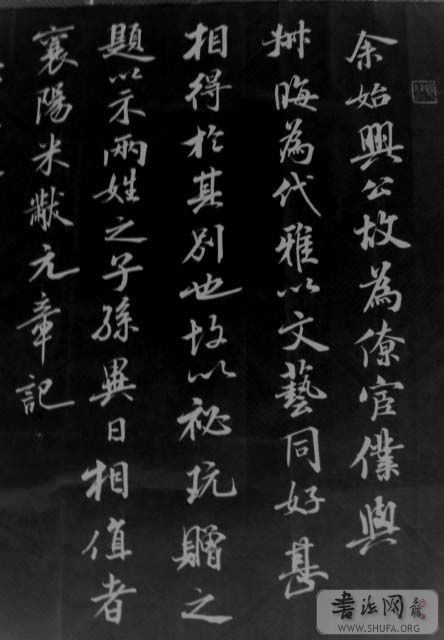 余始興公故為僚宦僕與
叔晦為代雅以文藝同好甚
相得於其別也故以祕玩贈之
題以示兩姓之子孫異日相值者
襄陽米黻元章記
書法网
WWW.SHUFA.ORG